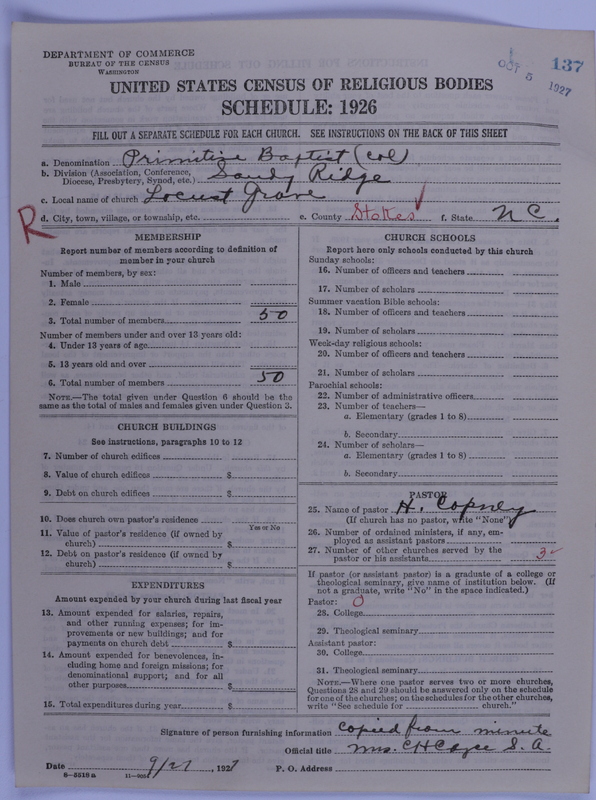 DEPARTMENT OF COMMERCE
BUREAU OF THE CENSUS
WASHINGTON
OCT 5 1927
137
UNITED STATES CENSUS OF RELIGIOUS BODIES
SCHEDULE: 1926
FILL OUT A SEPARATE SCHEDULE FOR EACH CHURCH. SEE INSTRUCTIONS ON THE BACK OF THIS SHEET
a. Denomination Primitive Baptist (col)
b. Division (Association, Conference, Diocese, Presbytery, Synod, etc.) Sandy Ridge
c. Local name of church Locust Grove
d. City, town, village, or township, etc. e. County Stokes f. State N C.
R
MEMBERSHIP
Report number of members according to definition of
member in your church
Number of members, by sex:
1. Male
2. Female
3. Total number of members 50
Number of members under and over 13 years old:
4. Under 13 years of age
5. 13 years old and over
6. Total number of members 50
NOTE.—The total given under Question 6 should be the
same as the total of males and females given under Question 3.
CHURCH BUILDINGS
See instructions, paragraphs 10 to 12
7. Number of church edifices
8. Value of church edifices $
9. Debt on church edifices $
10. Does church own pastor's residence
Yes or No
11. Value of pastor's residence (if owned by
church) $
12. Debt on pastor's residence (if owned by
church) $
EXPENDITURES
Amount expended by your church during last fiscal year
13. Amount expended for salaries, repairs,
and other running expenses; for im-
provements or new buildings; and for
payments on church debt $
14. Amount expended for benevolences, in-
cluding home and foreign missions; for
denominational support; and for all
other purposes $
15. Total expenditures during year $
CHURCH SCHOOLS
Report here only schools conducted by this church
Sunday schools:
16. Number of officers and teachers
17. Number of scholars
Summer vacation Bible schools:
18. Number of officers and teachers
19. Number of scholars
Week-day religious schools:
20. Number of officers and teachers
21. Number of scholars
Parochial schools:
22. Number of administrative officers
23. Number of teachers—
a. Elementary (grades 1 to 8)
b. Secondary
24. Number of scholars—
a. Elementary (grades 1 to 8)
b. Secondary
PASTOR
25. Name of pastor H. Copney
(If church has no pastor, write "None")
26. Number of ordained ministers, if any, em-
ployed as assistant pastors
27. Number of other churches served by the
pastor or his assistants 3
If pastor (or assistant pastor) is a graduate of a college or
theological seminary, give name of institution below. (If
not a graduate, write "No" in the space indicated.)
Pastor: 0
28. College
29. Theological seminary
Assistant pastor:
30. College
31. Theological seminary
NOTE.—Where one pastor serves two or more churches,
Questions 28 and 29 should be answered only on the schedule
for one of the churches; on the schedules for the other churches,
write "See schedule for church."
Signature of person furnishing information copied from minute
Official title Mrs. C H S. A.
Date 9/27, 1927 P. O. Address